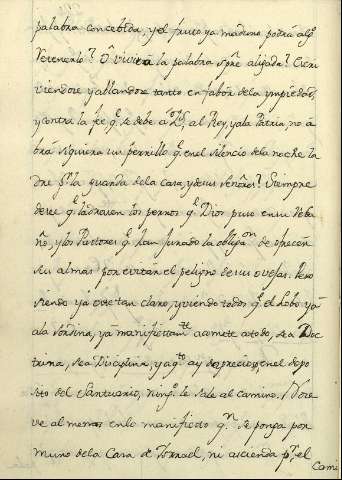 palabra concebida, y el fruto ya maduro podrá algº
Verenerlo? O vivirá la palabra spre aligada? Escri
viendose y ablandose tanto en fabor de la ympiedad,
y contra la fee qe se debe á Ds, al Rey, y ala Patria, no á
brá siquiera un perrillo qe en el silencio dela noche la
dre pr la guarda dela casa, y de sus señores? Siempre
dese qe ladrasen los perros qe Dios puso en su Reba
ño, y los Pastores qe han jurado la obligaon de ofrecer
su alma por evitar el peligro de sus ovejas. Pero
siendo ya este tan claro, y viendo todos qe el Lobo yá
ála sordina, yá manifiestamte acomete atodo, sea Doc
trina, sea Disciplina, y aqto ay de precioso en el depo
sito del Santuario, ningº le sale al camino. No se
ve al menos enlo manifiesto qn se ponga por
muro dela Casa de Ysrael, ni ascienda pr el
Cami